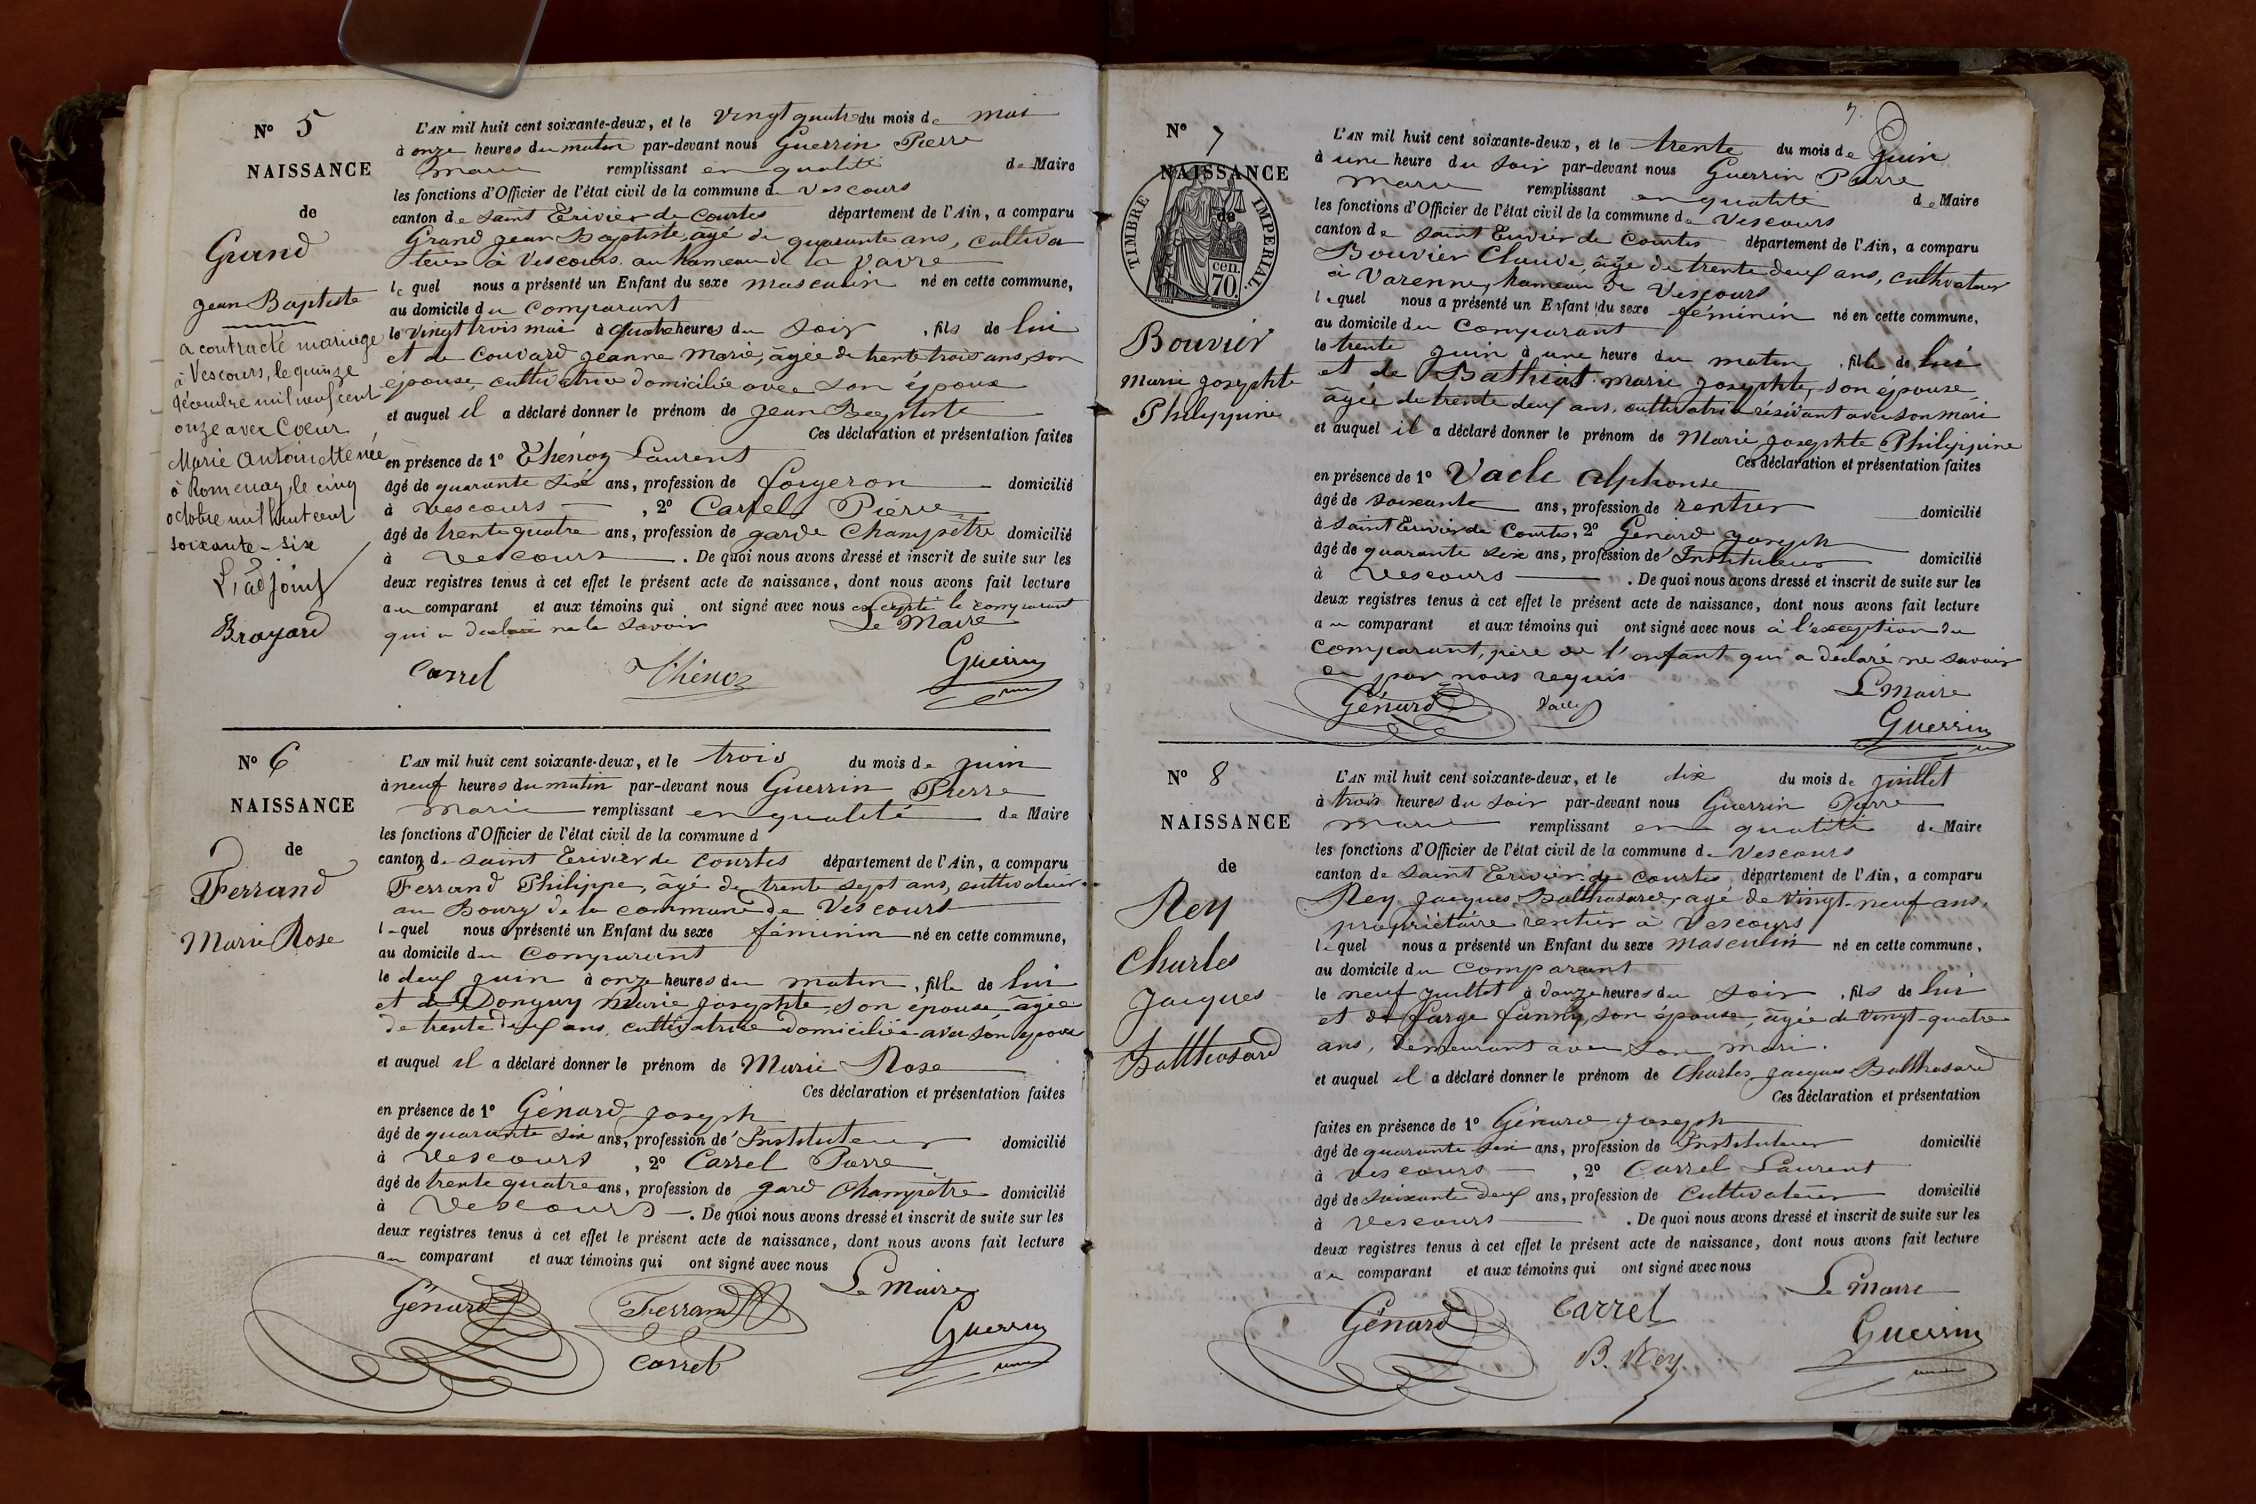 N° 5
NAISSANCE
de
Grand
Jean Baptiste
a contracté mariage
à Vescours, le quinze
décembre mil neuf cent
onze avec Coeur
Marie Antoinette née
à Romenay, le cinq
octobre mil huit cent
soixante-six
L'adjoint
Broyard
L'AN mil huit cent soixante-deux, et le vingt quatre du mois de mai
à onze heures du matin par-devant nous Guerrin Pierre
Marie remplissant en qualité de Maire
les fonctions d'Officier de l'état civil de la commune de Vescours
canton de Saint Trivier de Courtes département de l'Ain, a comparu
Grand Jean Baptiste, âgé de quarante ans, cultiva
teur à Vescours au hameau de la vavre
lequel nous a présenté un Enfant du sexe masculin né en cette commune,
au domicile du comparant
le vingt trois mai à quatre heures du soir, fils de lui
et de Couvard Jeanne Marie, âgée de trente trois ans, son
épouse, cultivatrice domiciliée avec son époux
et auquel il a déclaré donner le prénom de Jean Baptiste
Ces déclaration et présentation faites
en présence de 1° Thénoz Laurent
âgé de quarante six ans, profession de forgeron domicilié
à Vescours, 2° Carrel Pierre
âgé de trente quatre ans, profession de garde Champêtre domicilié
à Vescours. De quoi nous avons dressé et inscrit de suite sur les
deux registres tenus à cet effet le présent acte de naissance, dont nous avons fait lecture
au comparant et aux témoins qui ont signé avec nous excepté le comparant
qui a declaré ne le savoir Le Maire
Carrel Thénoz Guerrin
N° 6
NAISSANCE
de
Ferrand
Marie Rose
L'AN mil huit cent soixante-deux, et le trois du mois de juin
à neuf heures du matin par-devant nous Guerrin Pierre
Marie remplissant en qualité de Maire
les fonctions d'Officier de l'état civil de la commune d
canton de Saint Trivier de Courtes département de l'Ain, a comparu
Ferrand Philippe, âgé de trente sept ans, cultivateur
au Bourg de la commune de Vescours
lequel nous a présenté un Enfant du sexe féminin né en cette commune,
au domicile du comparant
le deux juin à onze heures du matin, fille de lui
et de Donguy Marie Josephte, son épouse âgée
de trente deux ans, cultivatrice domiciliée avec son époux
et auquel il a déclaré donner le prénom de Marie Rose
Ces déclaration et présentation faites
en présence de 1° Génard Joseph
âgé de quarante six ans, profession de Instituteur domicilié
à Vescours, 2° Carrel Pierre
âgé de trente quatre ans, profession de gard Champêtre domicilié
à Vescours. De quoi nous avons dressé et inscrit de suite sur les
deux registres tenus à cet effet le présent acte de naissance, dont nous avons fait lecture
au comparant et aux témoins qui ont signé avec nous
Le Maire
Génard Ferrand Guerrin
Carrel
7.
N° 7
NAISSANCE
de
TIMBRE IMPERIAL.
70 cen.
Bouvier
Marie Josephte
Philippine
L'AN mil huit cent soixante-deux, et le trente du mois de Juin
à une heure du soir par-devant nous Guerrin Pierre
Marie remplissant en qualité de Maire
les fonctions d'Officier de l'état civil de la commune de Vescours
canton de Saint Trivier de Courtes département de l'Ain, a comparu
Bouvier Claude, âgé de trente deux ans, cultivateur
à Varenne, hameau de Vescours
lequel nous a présenté un Enfant du sexe féminin né en cette commune,
au domicile du comparant
le trente juin à une heure du matin, fille de lui
et de Bathiat Marie Josephte, son épouse
âgée de trente deux ans, cultivatrice résidant avec son mari
et auquel il a déclaré donner le prénom de Marie Josephte Philippine
Ces déclaration et présentation faites
en présence de 1° Vacle Alphonse
âgé de soixante ans, profession de rentier domicilié
à Saint Trivier de Courtes, 2° Génard Joseph
âgé de quarante six ans, profession de Instituteur domicilié
à Vescours. De quoi nous avons dressé et inscrit de suite sur les
deux registres tenus à cet effet le présent acte de naissance, dont nous avons fait lecture
au comparant et aux témoins qui ont signé avec nous à l'exception du
comparant, père de l'enfant qui a déclaré ne savoir
de par nous requis
Le Maire
Génard Guerrin
N° 8
NAISSANCE
de
Rey
Charles
Jacques
Balthasard
L'AN mil huit cent soixante-deux, et le dix du mois de Juillet
à trois heures du soir par-devant nous Guerrin Pierre
Marie remplissant en qualité de Maire
les fonctions d'Officier de l'état civil de la commune de Vescours
canton de Saint Trivier de Courtes département de l'Ain, a comparu
Rey Jacques Balthasard, agé de vingt-neuf ans,
propriétaire rentier à Vescours
lequel nous a présenté un Enfant du sexe masculin né en cette commune,
au domicile du comparant
le neuf juillet à douze heures du soir, fils de lui
et de farge fanny, son épouse, âgée de vingt-quatre
ans, demeurant avec son mari.
et auquel il a déclaré donner le prénom de Charles Jacques Balthasard
Ces déclaration et présentation
faites en présence de 1° Génard Joseph
âgé de quarante six ans, profession de Instituteur domicilié
à Vescours, 2° Carrel Laurent
âgé de soixante deux ans, profession de Cultivateur domicilié
à Vescours. De quoi nous avons dressé et inscrit de suite sur les
deux registres tenus à cet effet le présent acte de naissance, dont nous avons fait lecture
au comparant et aux témoins qui ont signé avec nous
Le Maire
Génard Carrel Guerrin
B. Rey